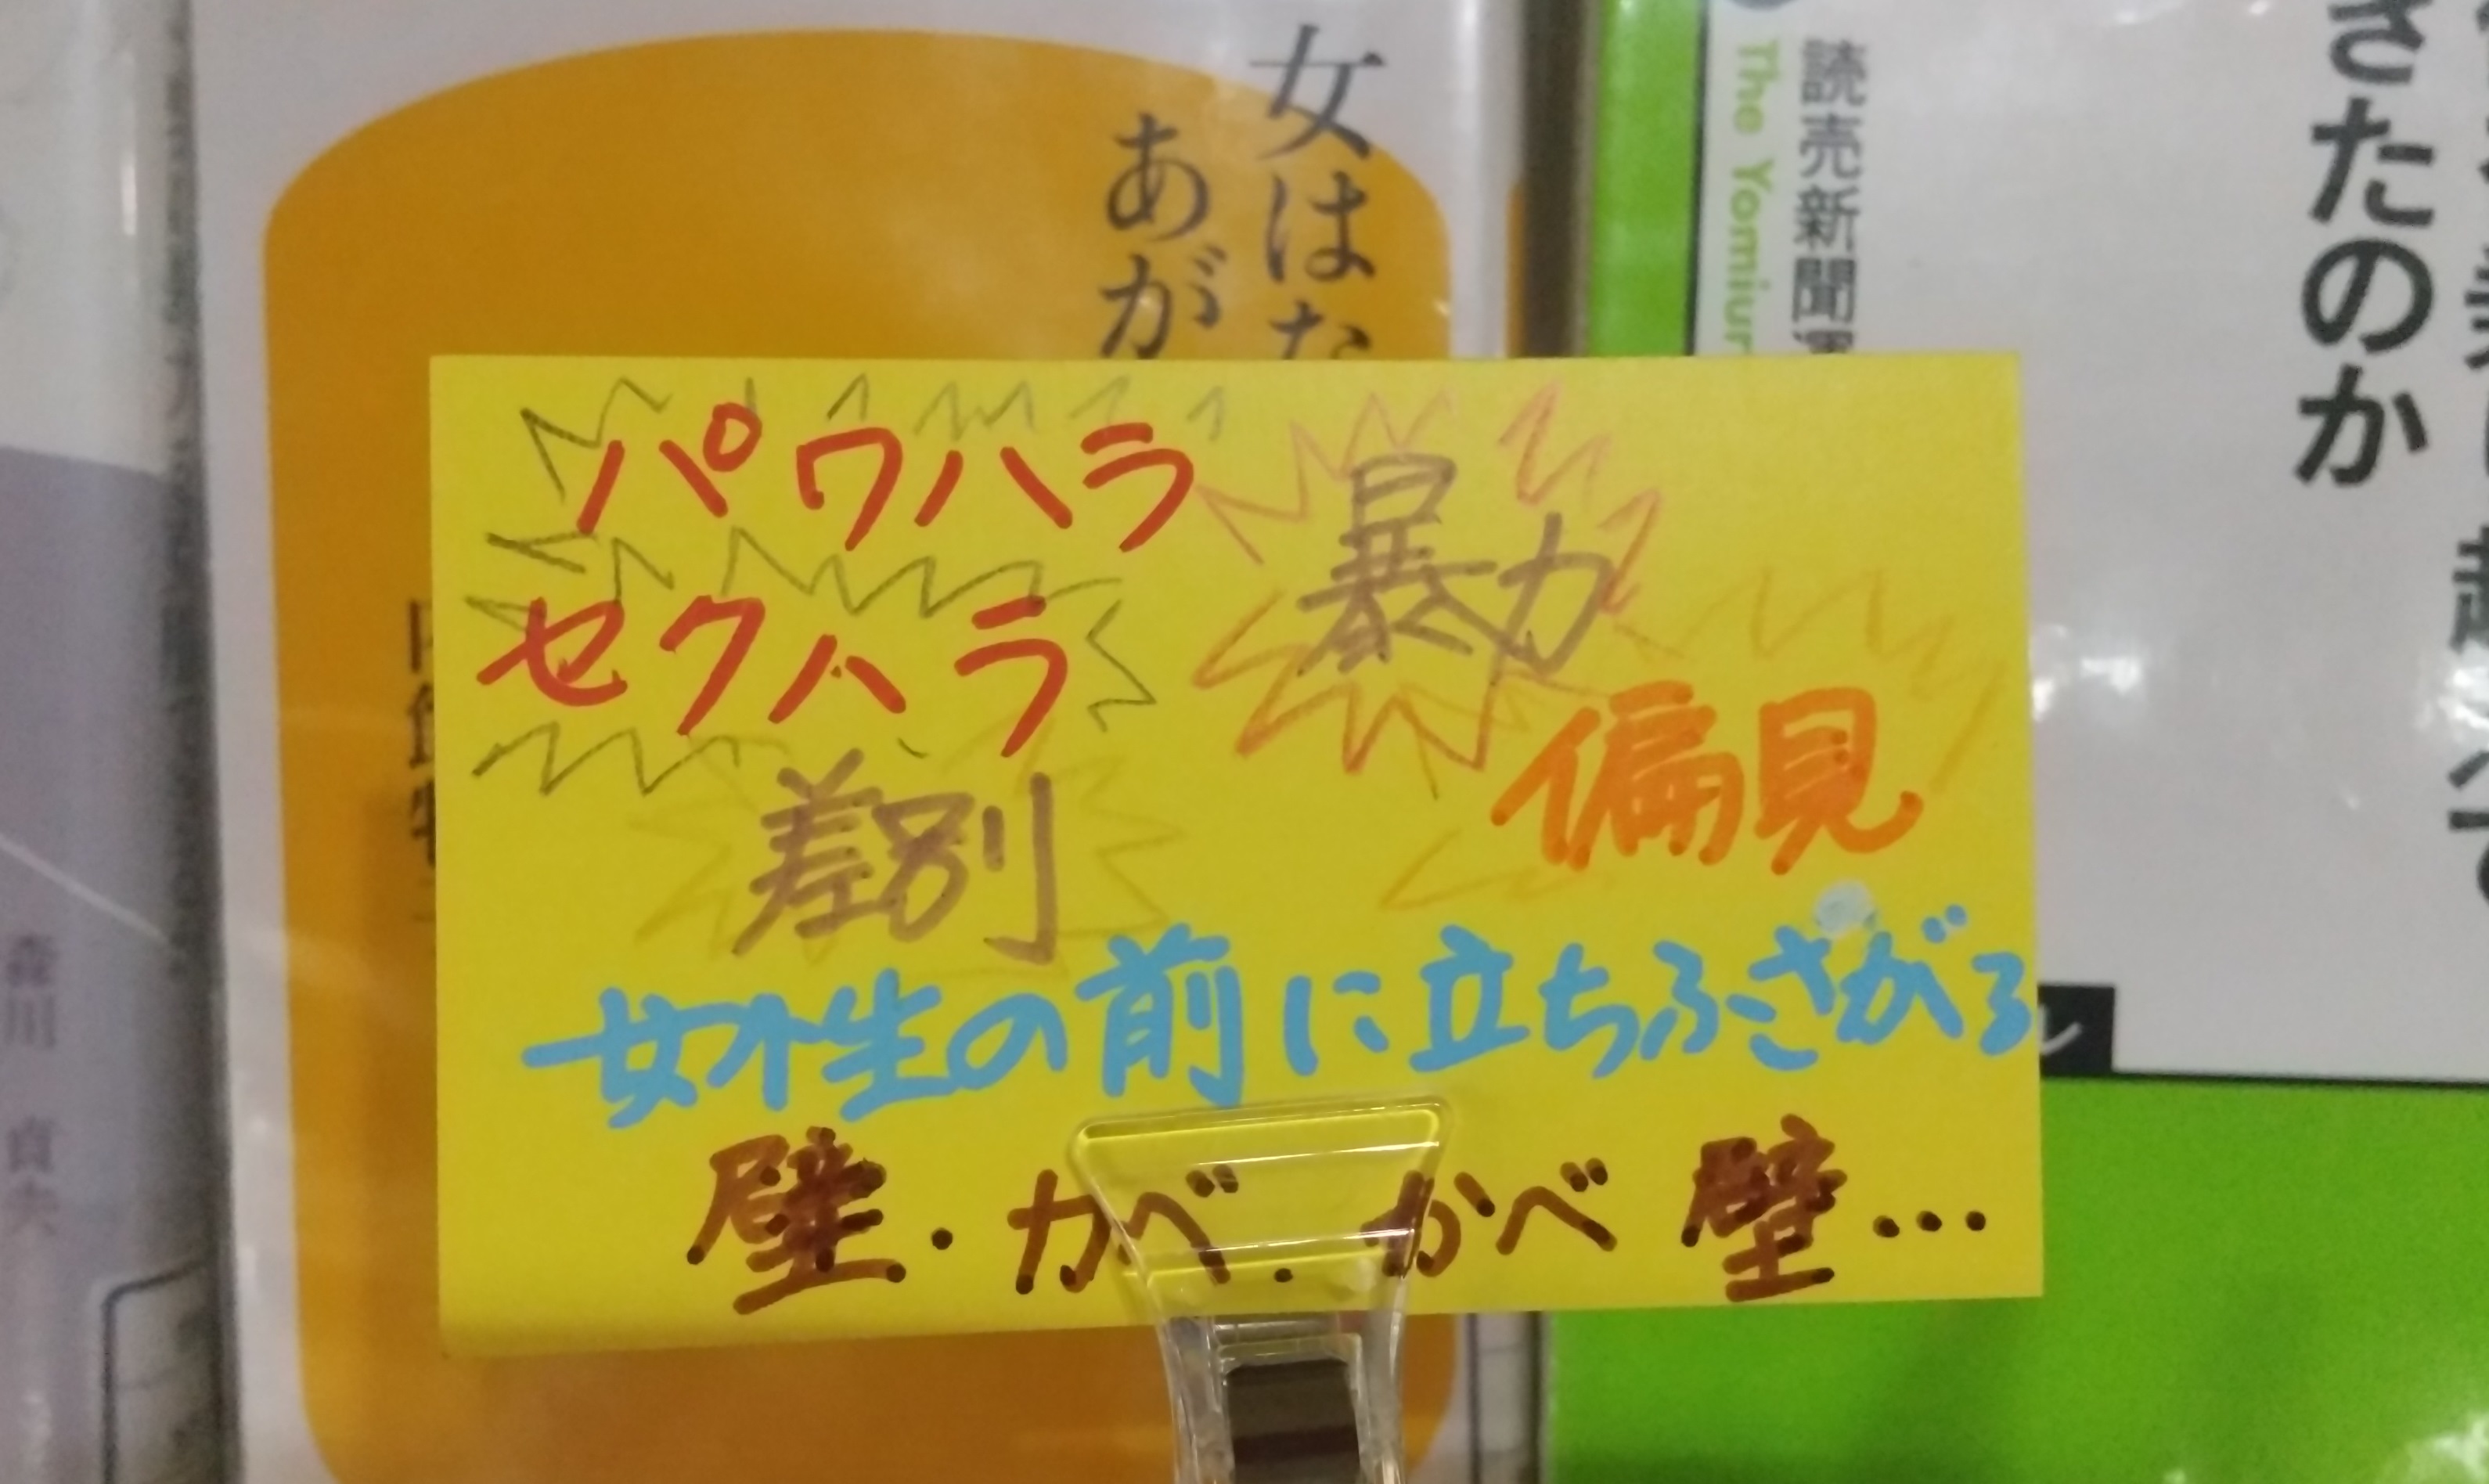 パワハラ
セクハラ
暴力
差別
偏見
女性の前に立ちふさがる
壁・カベ・かべ 壁…
女はな
あが
読売新聞
The Yomiur
きたのか
森川 貞夫